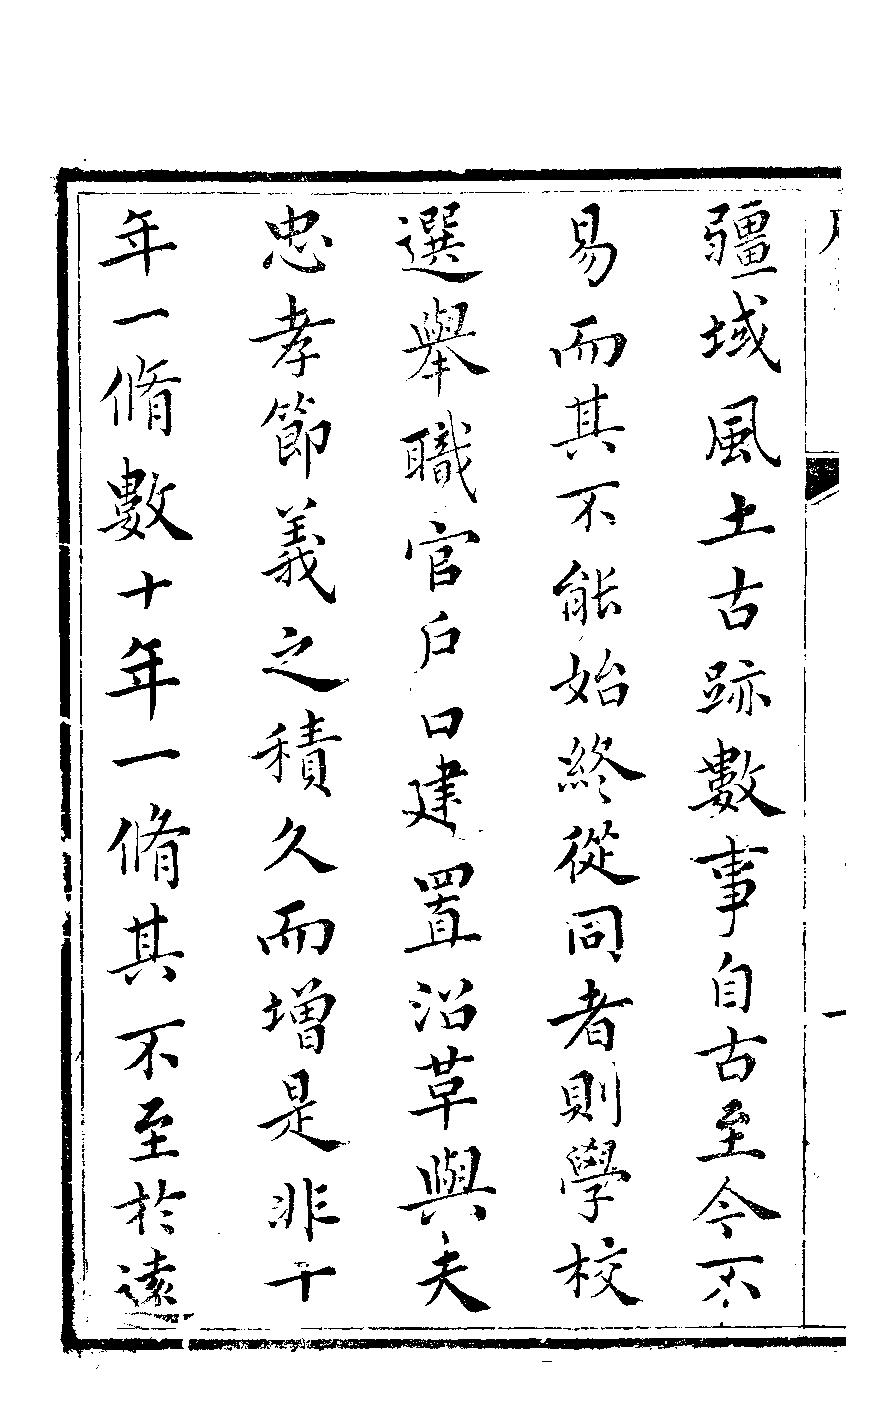 彊域風土古跡數事自古至今不
易而其不能始終從同者則學校
選舉職官戶口建置沿革與夫
忠孝節義之積久而增是非十
年一脩數十年一脩其不至於遠